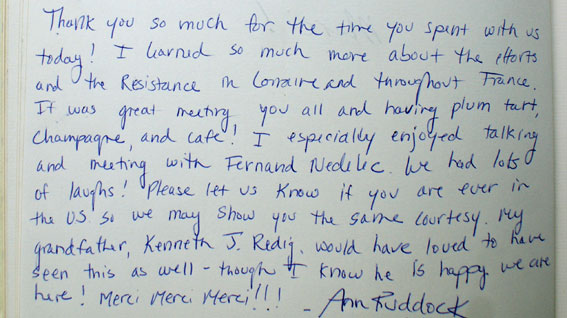 Thank you so much for the time you spent with us
today! I learned so much more about the efforts
and the Resistance in Lorraine and throughout France.
It was great meeting you all and having plum tart,
Champagne, and cafe! I especially enjoyed talking
and meeting with Fernand Nedelec. We had lots
of laughs! Please let us know if you are ever in
the US so we may show you the same courtesy. My
grandfather, Kenneth J. Redig, would have loved to have
seen this as well - though I know he is happy we are
here! Merci Merci Merci!!! - Ann Ruddock